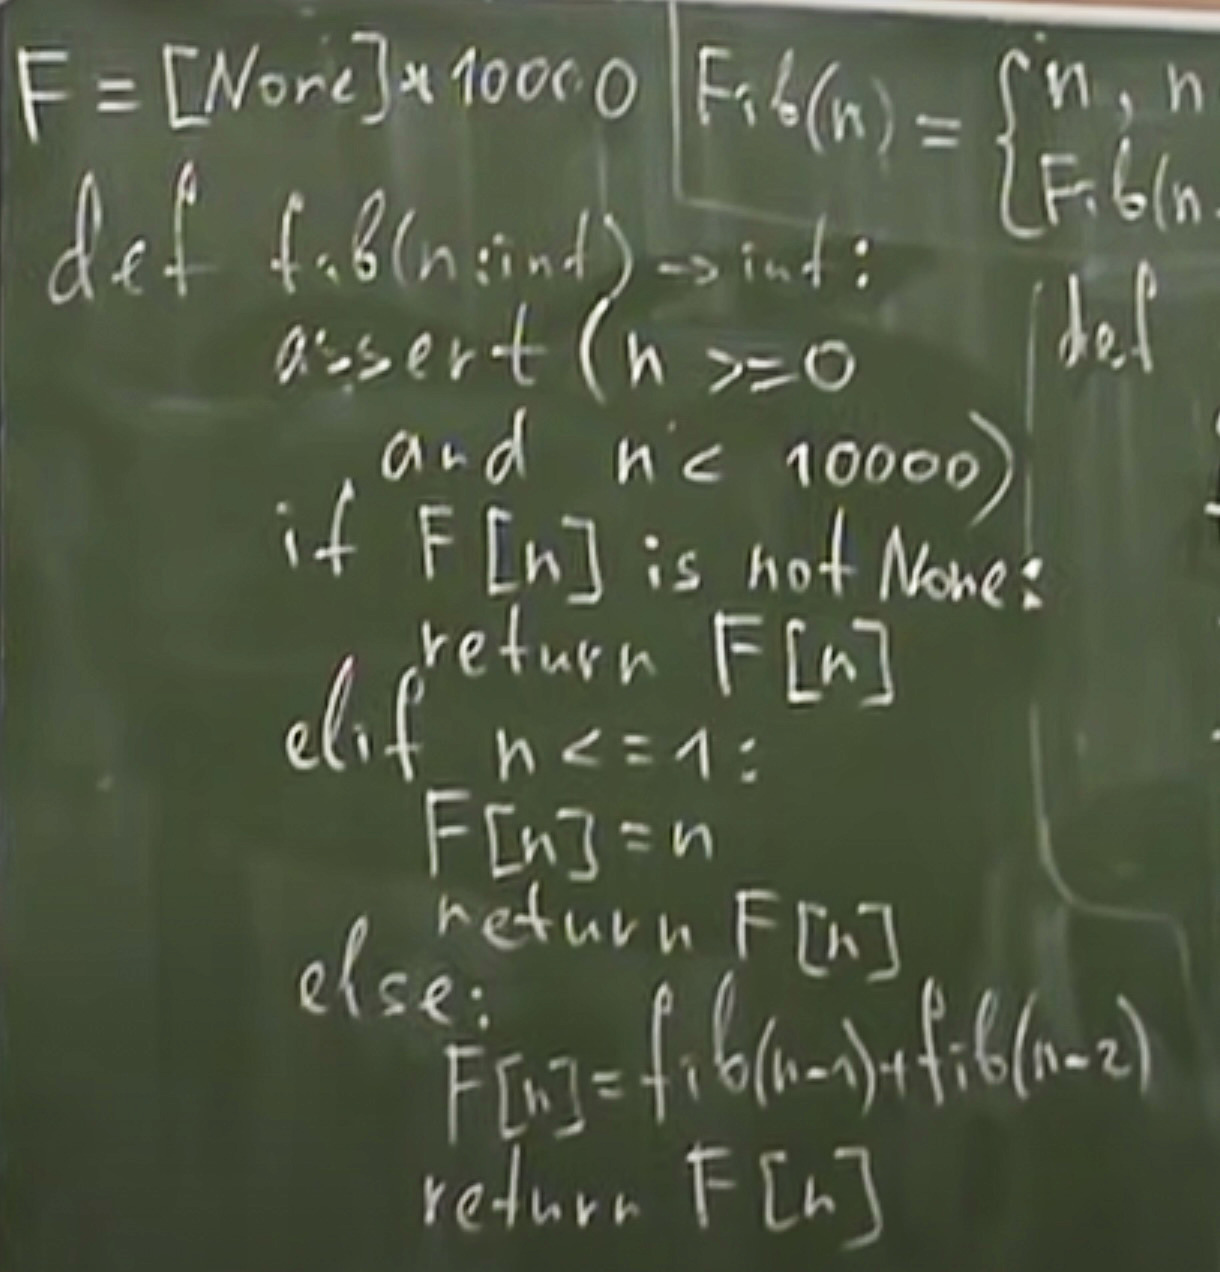 F = [None]*10000
def fib(n:int)->int:
assert (n >=0
and n < 10000)
if F[n] is not None:
return F[n]
elif n <= 1:
F[n] = n
return F[n]
else:
F[n] = fib(n-1)+fib(n-2)
return F[n]
Fib(n) = {
n, n
Fib(n-
def